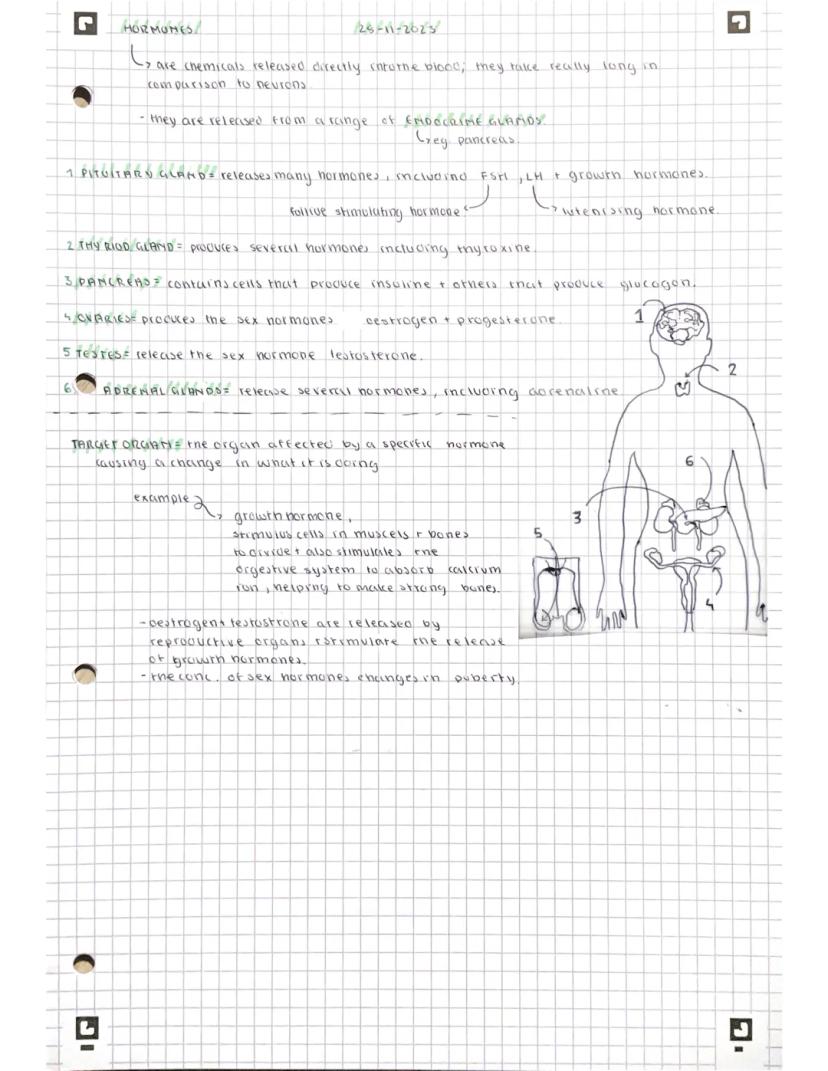 HORMONES 25-11-2025
↳ are chemicals released directly into the blood; they take really long in
comparison to neurons
- they are released from a range of ENDOCRINE GLANDS.
↳ eg. pancreas.
1 PITUITARY GLAND = releases many hormones, including FSH, LH + growth hormones.
follicle stimulating hormone lutenising hormone.
2 THYRIOD GLAND = produces several hormones including thyroxine.
3 PANCREAS = contains cells that produce insuline + others that produce glucagon.
4 OVARIES = produces the sex hormones oestrogen + progesterone.
5 TESTES = release the sex hormone testosterone.
6 ADRENAL GLANDS = release several hormones, including adrenaline
TARGET ORGAN = the organ affected by a specific hormone
causing a change in what it is doing
example
↳ growth hormone,
stimulus cells in muscels + bones
to divide + also stimulates the
digestive system to absorb calcium
ion, helping to make strong bones.
- oestrogen + testostrone are released by
reproductive organs + stimulate the release
of growth hormones.
- the conc. of sex hormones changes in puberty.
1
2
6
3
5
4